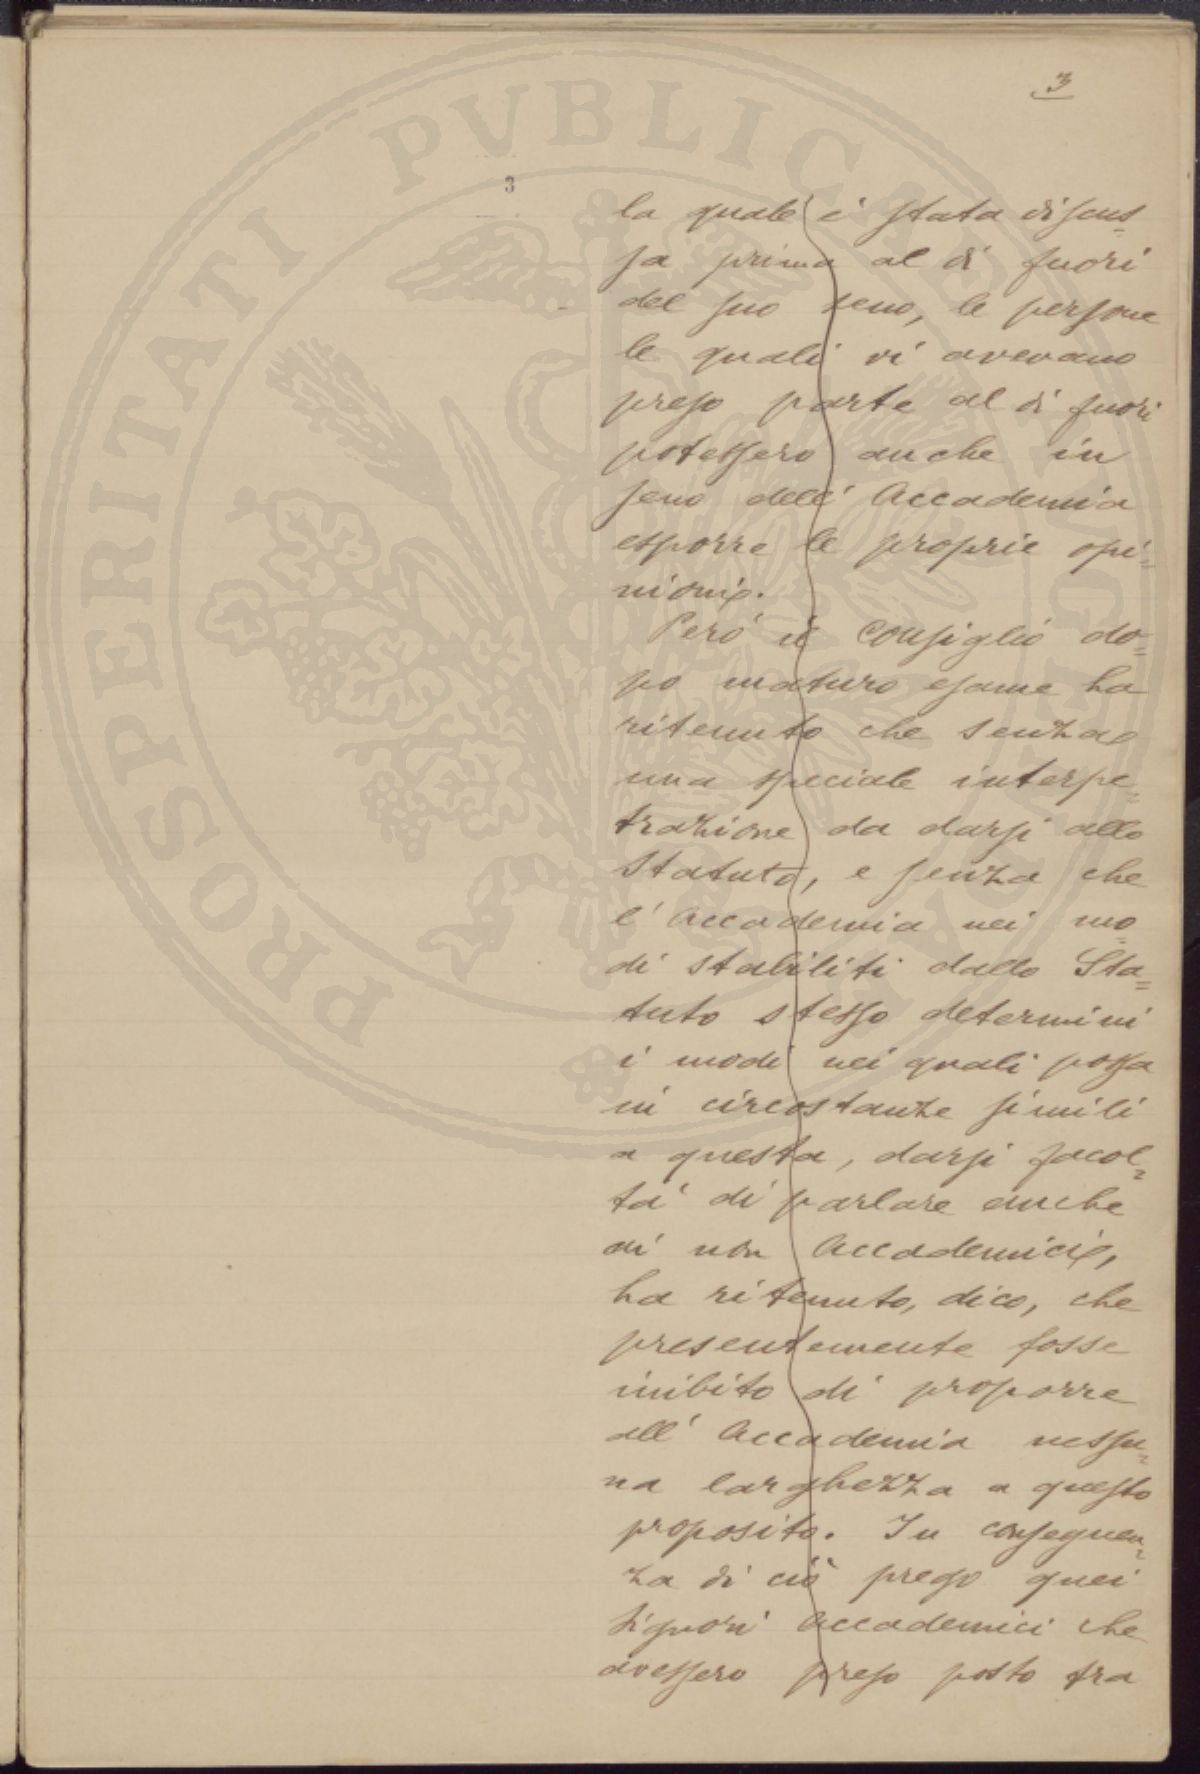 3
3
PROSPERITATI PVBLICAE
la quale è stata discus-
sa prima al di fuori
del suo seno, le persone
le quali vi avevano
preso parte al di fuori
potessero anche in
seno dell'Accademia
esporre le proprie opi=
nioni.
Però il Consiglio do=
po maturo esame ha
ritenuto che senza
una speciale interpe=
trazione da darsi allo
Statuto, e senza che
l'Accademia nei mo=
di stabiliti dallo Sta=
tuto stesso determini
i modi nei quali possa
in circostanze simili
a questa, darsi facol=
tà di parlare anche
ai non Accademici,
ha ritenuto, dico, che
presentemente fosse
inibito di proporre
all'Accademia nessu=
na larghezza a questo
proposito. In conseguen=
za di ciò prego quei
Signori Accademici che
avessero preso posto tra